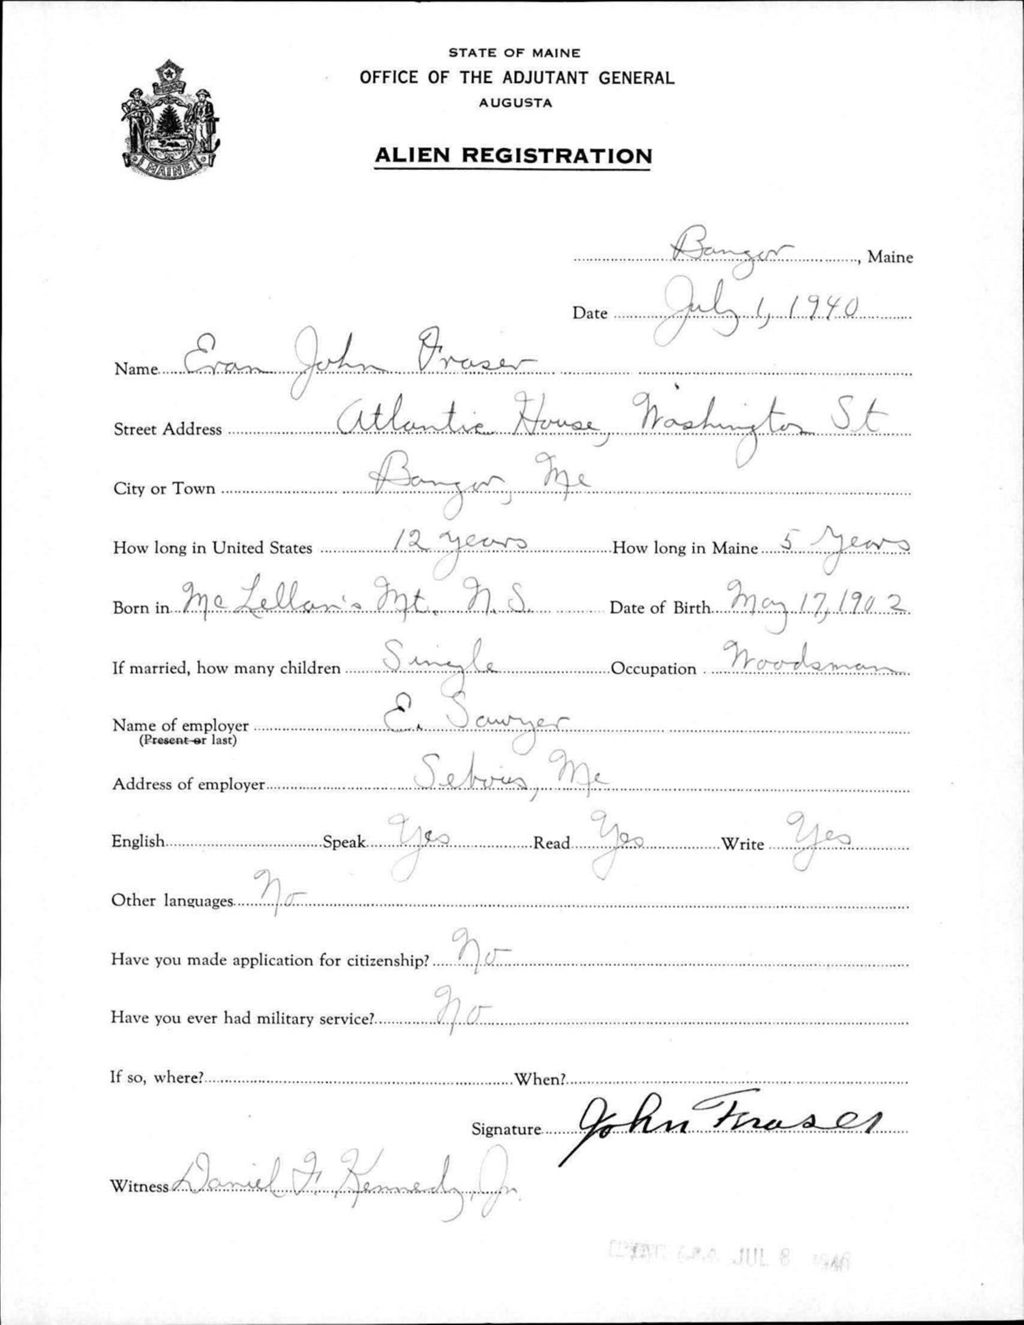 STATE OF MAINE
OFFICE OF THE ADJUTANT GENERAL
AUGUSTA
ALIEN REGISTRATION
MAINE
Bangor, Maine
Date July 1, 1940
Name Evan John Fraser
Street Address Atlantic House, Washington St
City or Town Bangor, Me
How long in United States 12 years How long in Maine 5 Years
Born in McLellan's Mt. N.S. Date of Birth May 17, 1902
If married, how many children Single Occupation Woodsman
Name of employer E. Sawyer
(Present or last)
Address of employer Sebois, Me
English Speak Yes Read Yes Write Yes
Other languages No
Have you made application for citizenship? No
Have you ever had military service? No
If so, where? When?
Signature John Fraser
Witness Daniel F. Kennedy, Jr.
A.G.O. JUL 8 1940